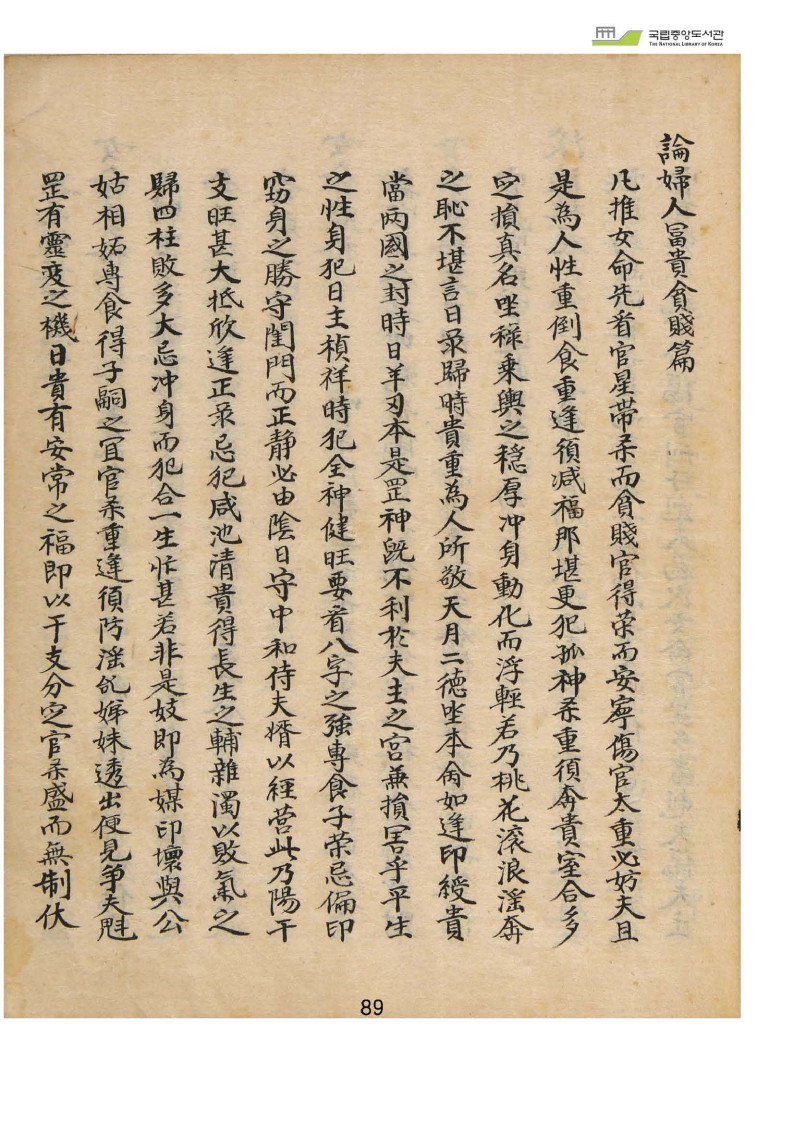 국립중앙도서관
THE NATIONAL LIBRARY OF KOREA
論婦人冨貴貧賤篇
凡推女命先看官星帯柔而貧賤官得荣而安寧傷官太重必妨夫且
是為人性重倒食重逢須减福那堪更犯孤神柔重須奔貴室合多
定損真名坐禄乗輿之穏厚冲身動化而浮輕若乃桃花滚浪滛奔
之恥不堪言日录歸時貴重為人所敬天月二德坐本命如逢印綬貴
當兩國之封時日羊刃本是罡神旣不利於夫主之宫兼損害乎平生
之性身犯日主楨祥時犯全神健旺要看八字之強專食子荣忌偏印
窃身之勝守閨門而正静必由陰日守中和侍夫婿以經営此乃陽干
支旺甚大抵欣逢正录忌犯咸池清貴得長生之輔雜濁以敗氣之
歸四柱敗多大忌冲身而犯合一生忙甚若非是妓即為媒印壞與公
姑相妬專食得子嗣之宜官柔重逢須防滛乱娣妹透出便見争夫魁
罡有靈変之機日貴有安常之福即以干支分定官柔盛而無制伏
89